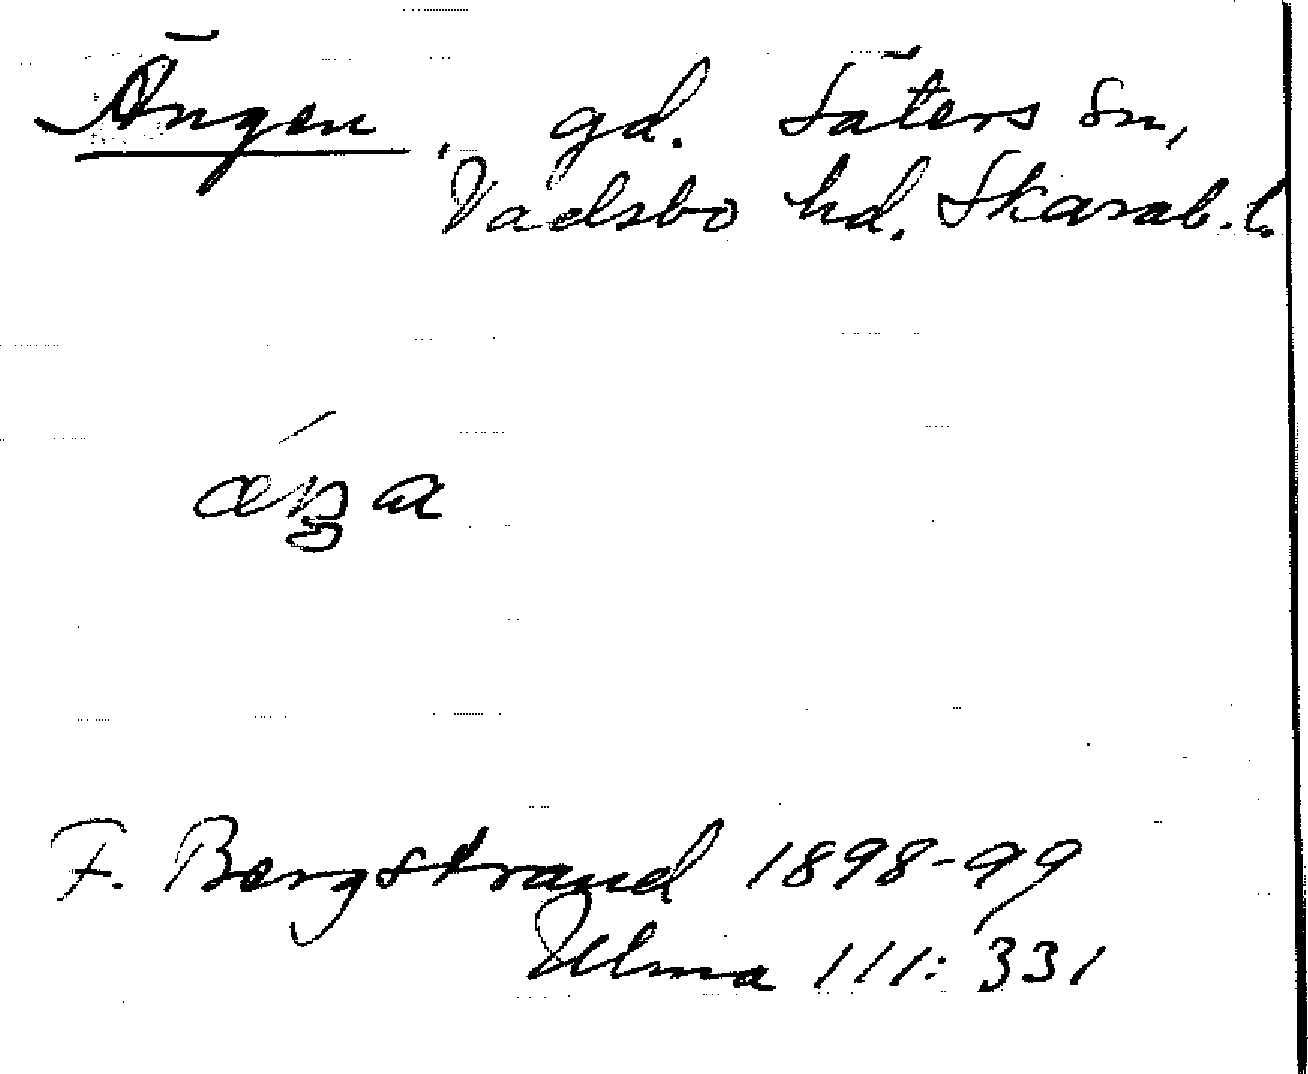 Ängen, gd. Säters sn,
Vadsbo hd. Skarab. l.
F. Bergstrand 1898-99
Ulma 111:331